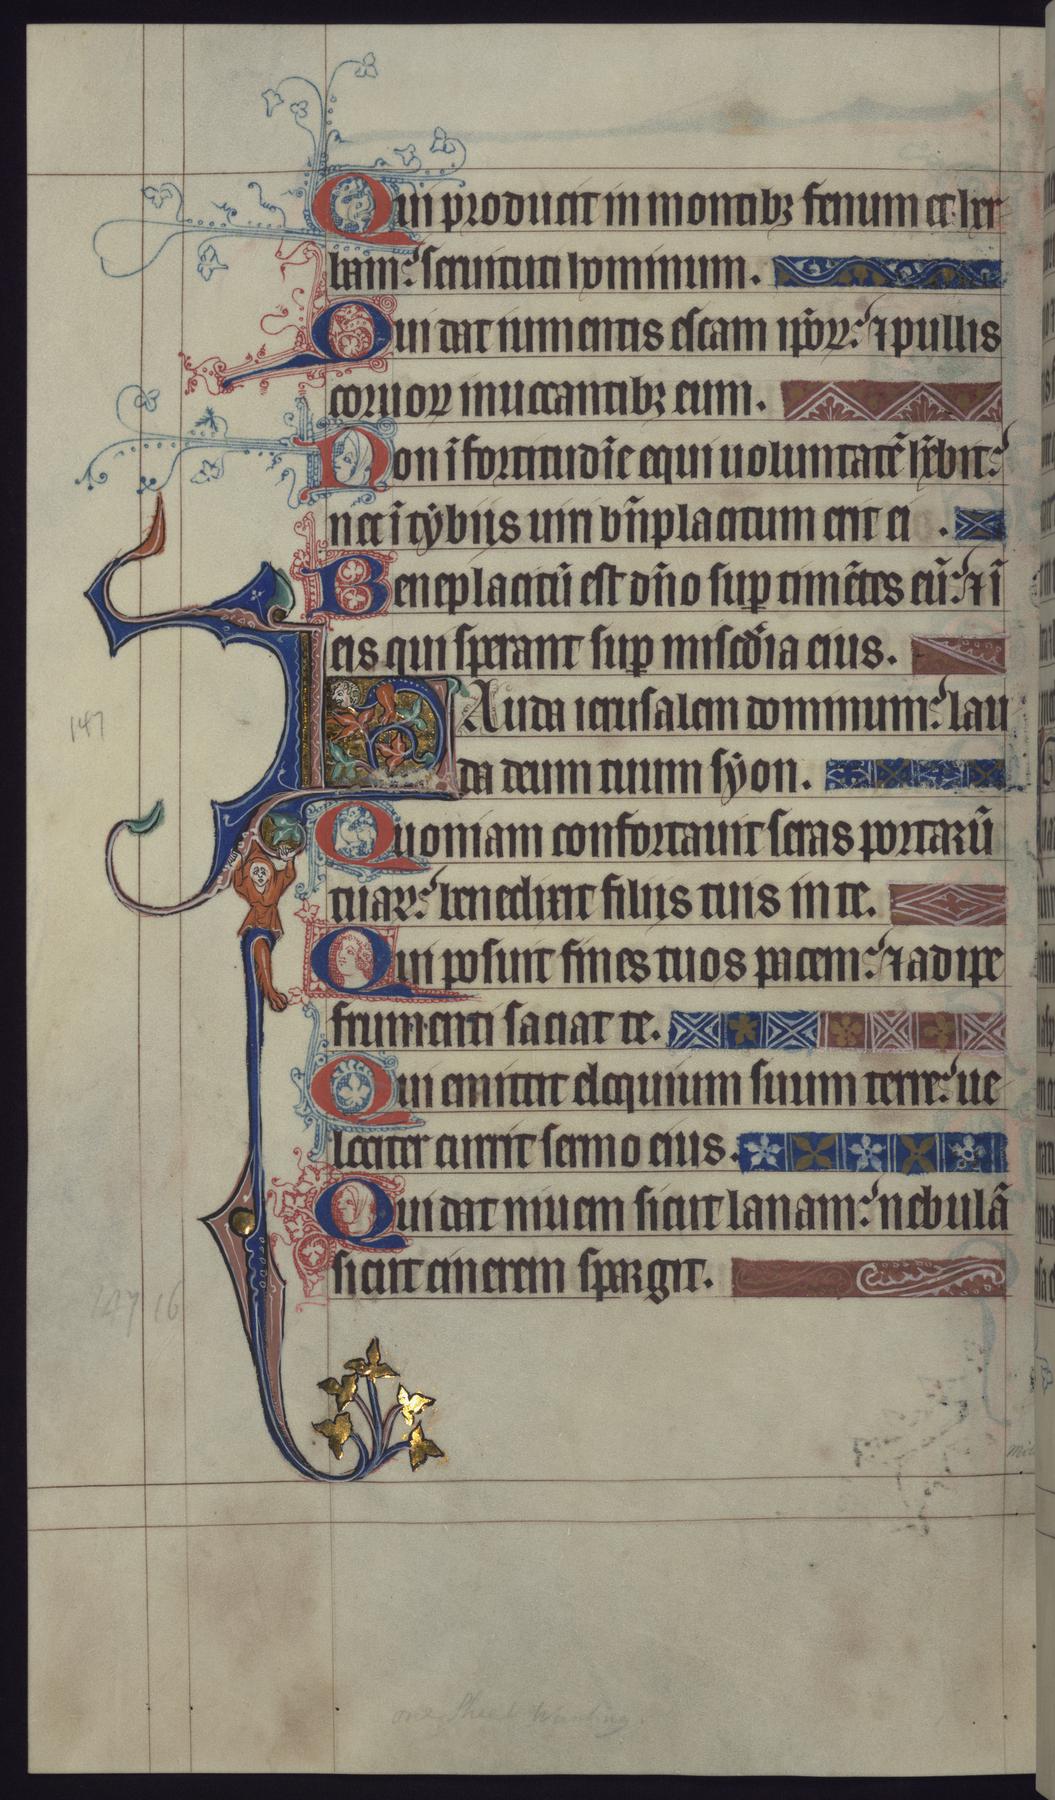 Qui producit in montibꝫ fenum et her
bam: seruituti hominum.
Qui dat iumentis escam ip̄oꝝ: ⁊ pullis
coruoꝝ inuocantibꝫ eum.
Non ī fortitudīe equi uoluntatē hēbit:
nec ī tybiis uiri bn̄placitum erit ei .
Beneplacitū est dn̄o suꝑ timētes eū: ⁊ ī
eis qui sperant suꝑ misc̄dia eius.
Lauda ierusalem dominum: lau
da deum tuum syon.
147
Quoniam confortauit seras portarū
tuaꝝ: benedixit filiis tuis in te.
Qui posuit fines tuos pacem: ⁊ adipe
frumenti saciat te.
Qui emittit eloquium suum terre: ue
lociter currit sermo eius.
Qui dat niuem sicut lanam: nebulā
sicut cinerem spargit.
147 16
one Sheet Wanting.